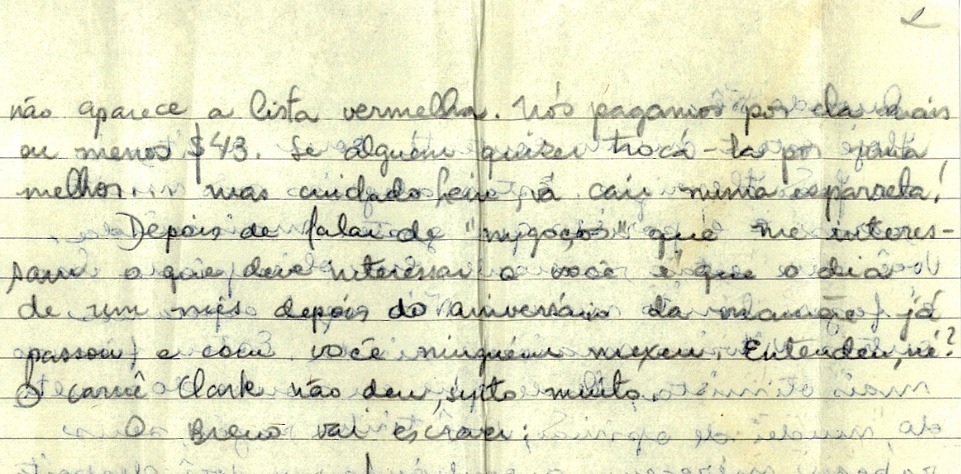 não aparece a lista vermelha. Nós pagamos por ela mais
ou menos $43. Se alguém quizer trocá-la por uma
melhor... mas cuidado hein, vá cair numa esparrela!
Depois de falar de "negoços" que me interes-
sam o que deve interessar a você é que o dia
de um mês depois do aniversário da mamãe já
passou e com você ninguém mexeu. Entendeu, né?
O carnê Clark não deu, sinto muito.
O Breno vai escrever;